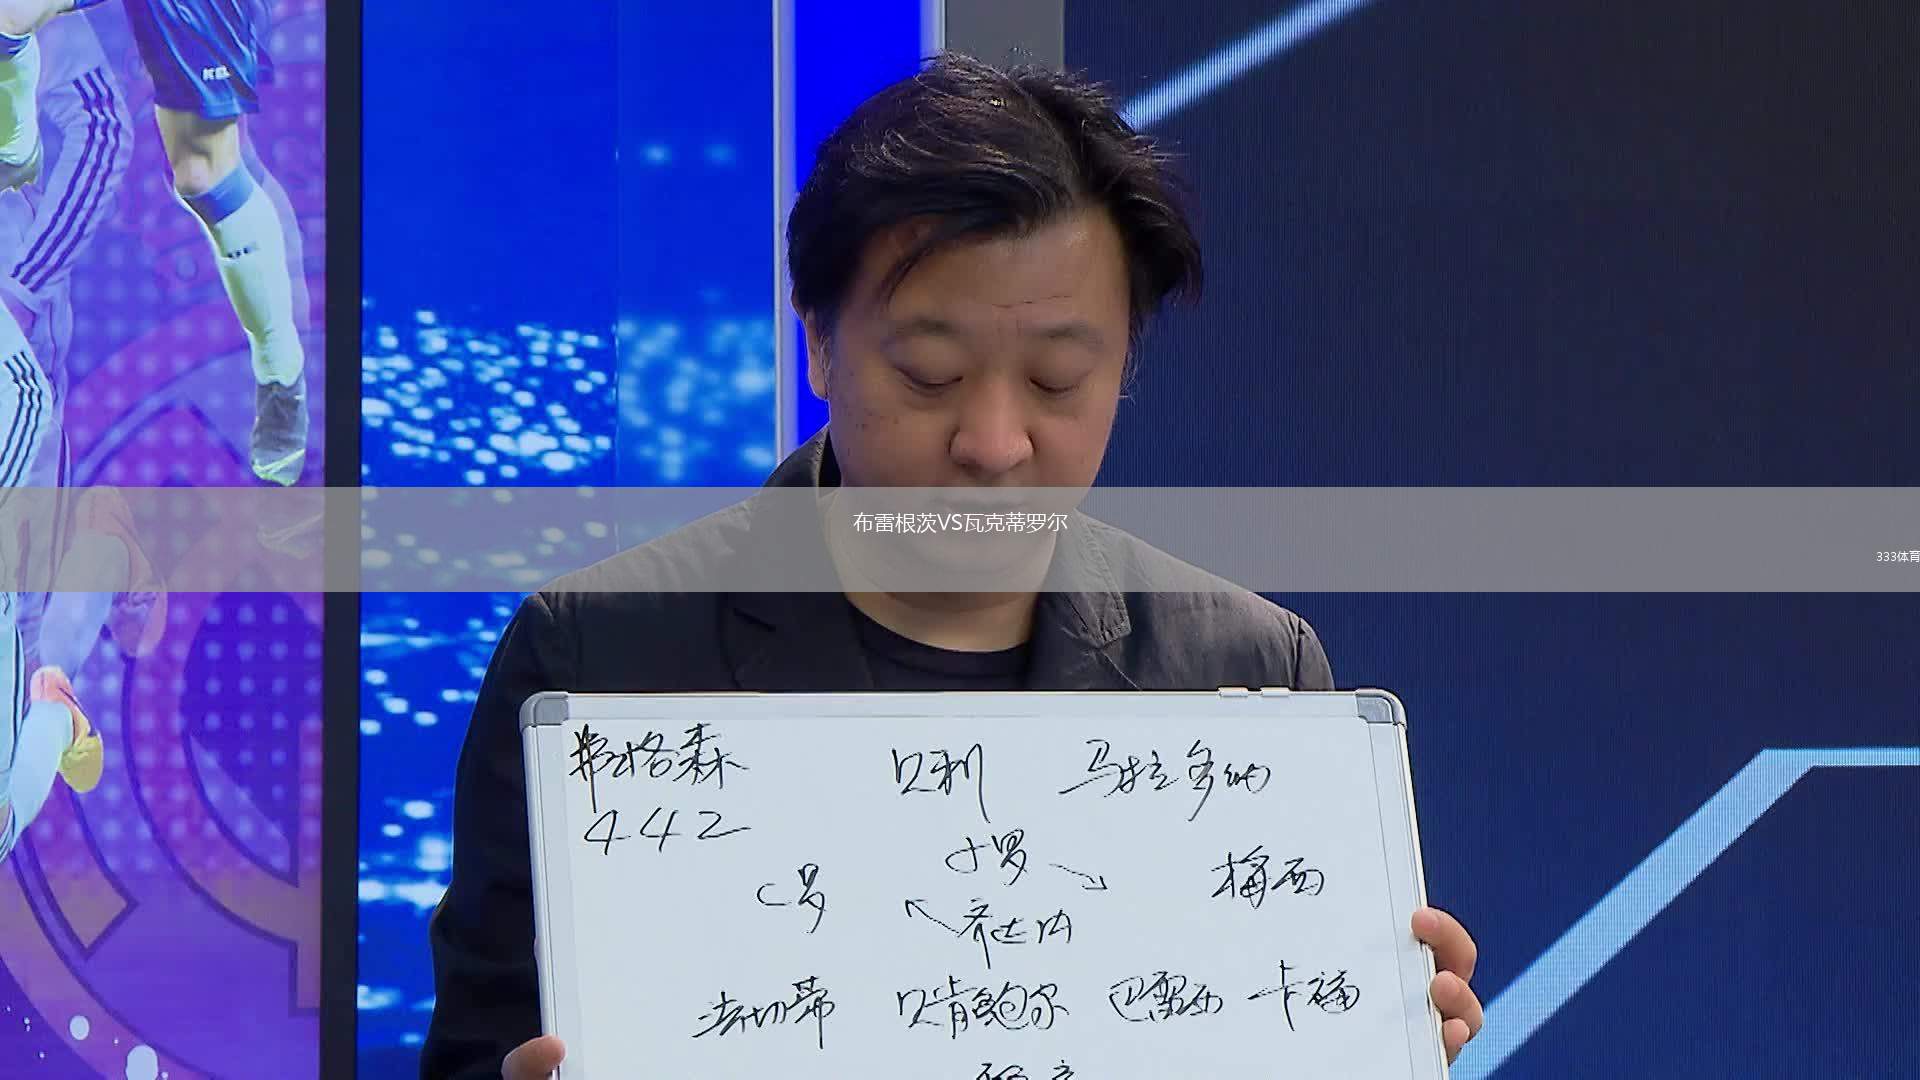 布雷根茨VS瓦克蒂罗尔
333体育
弗格森 贝利 马拉多纳
442
小罗
C罗 梅西
齐达内
法切蒂 贝肯鲍尔 巴雷西 卡福